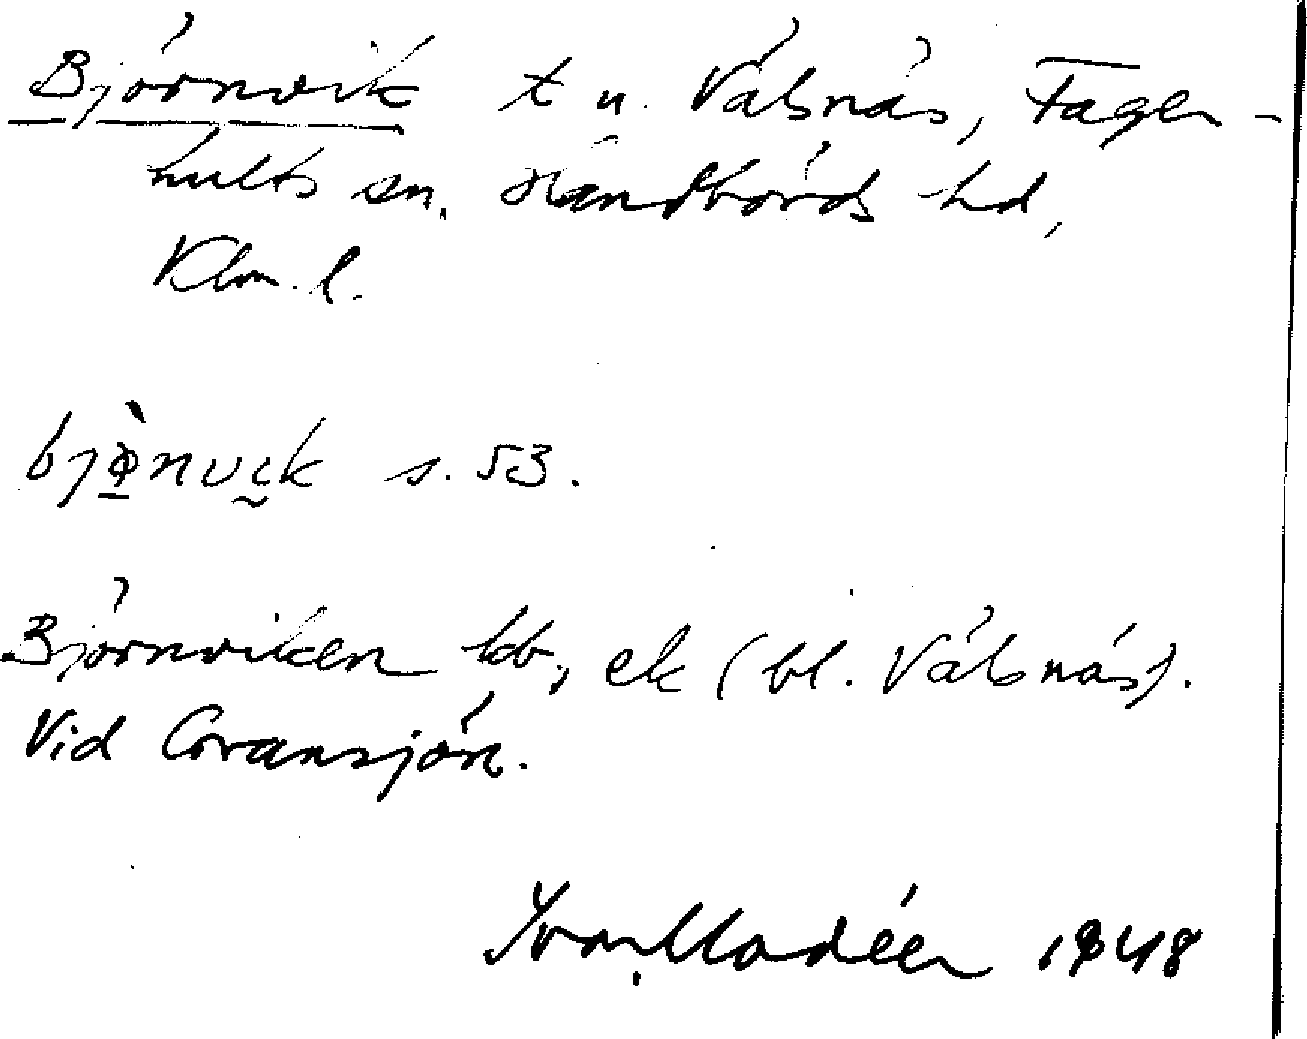 Björnvik t u. Välsnäs, Fager-
hults sn, Handbörds hd,
Klm. l.
bjö̀nvik s. 53.
Björnviken kb, ek (bl. Välsnäs).
Vid Gransjön.
Ivar Modéer 1948